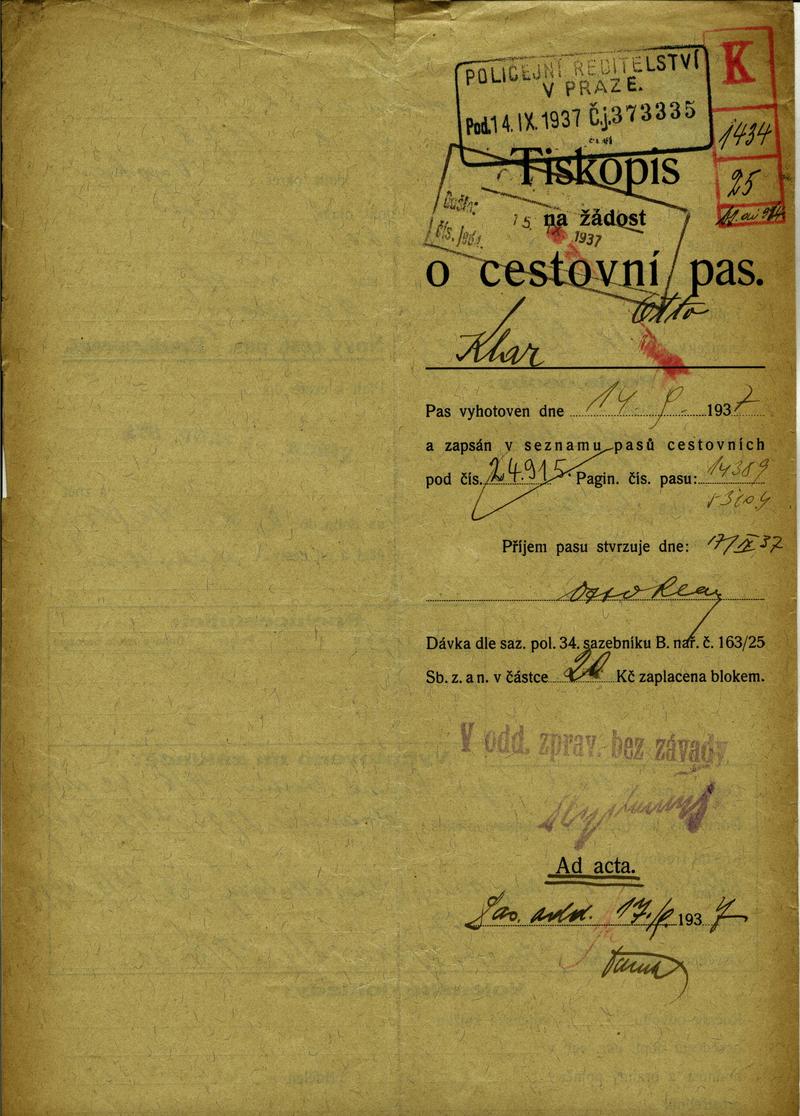 POLICEJNÍ ŘEDITELSTVÍ
V PRAZE.
Pod. 14. IX. 1937 Č.j. 373335
K
1434
25
Tiskopis
na žádost
15. IX. 1937
o cestovní pas.
Otto
Klar
Pas vyhotoven dne 14. 9. 1937
a zapsán v seznamu pasů cestovních
pod čís. 24.915 Pagin. čís. pasu: 14389
Příjem pasu stvrzuje dne: 17/IX 37
Otto Klar
Dávka dle saz. pol. 34. sazebníku B. nař. č. 163/25
Sb. z. a n. v částce 20 Kč zaplacena blokem.
V odd. zprav. bez závady
Ad acta.
Pas. odd. 17./9. 1937